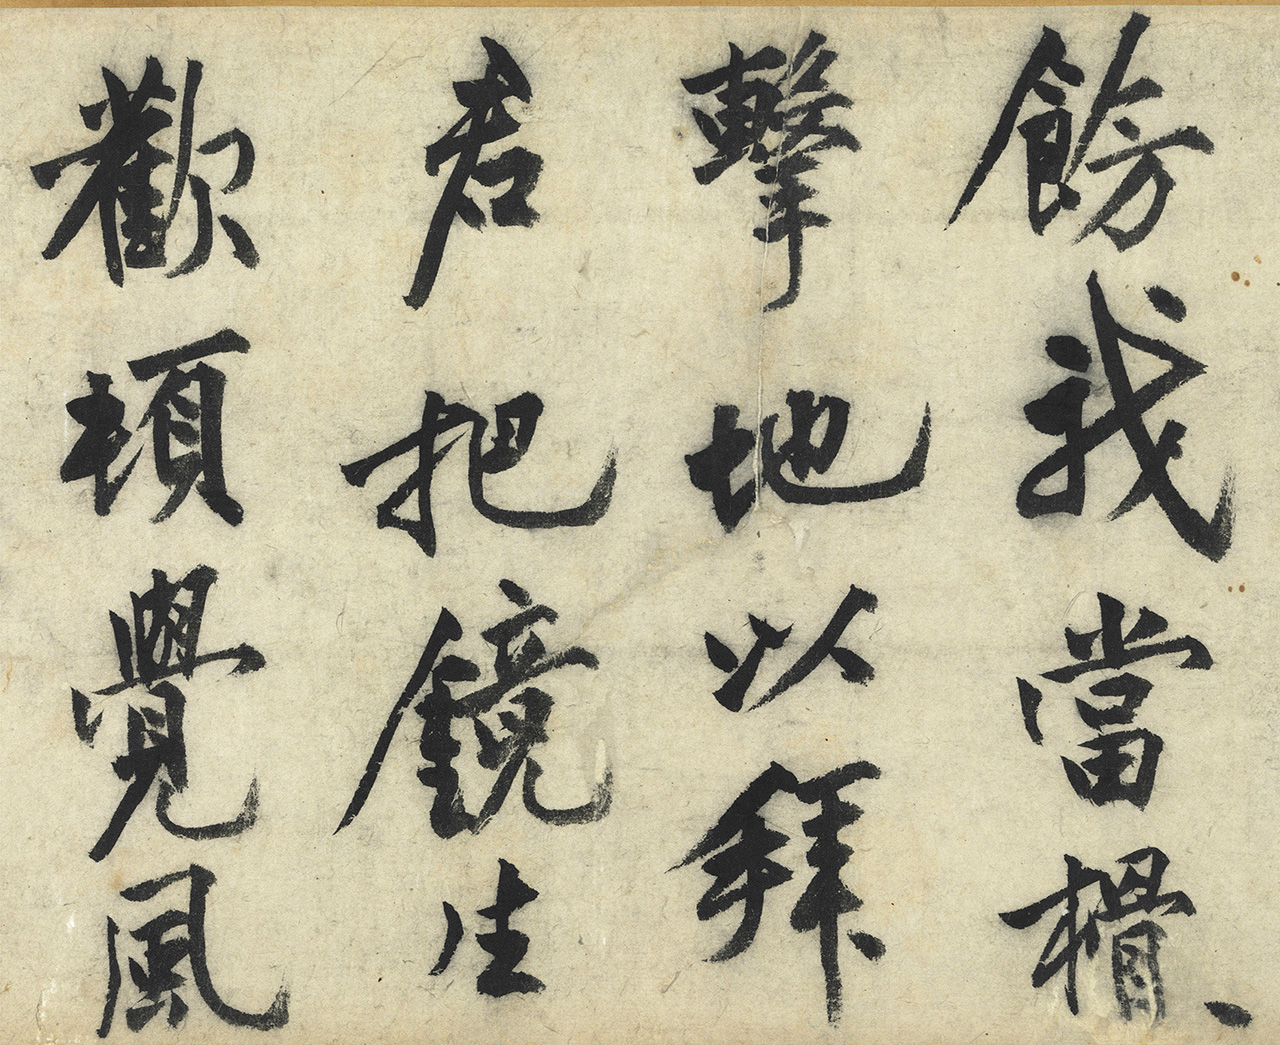 餝我當榾、
擊地以拜
君把鏡生
歡頓覺風